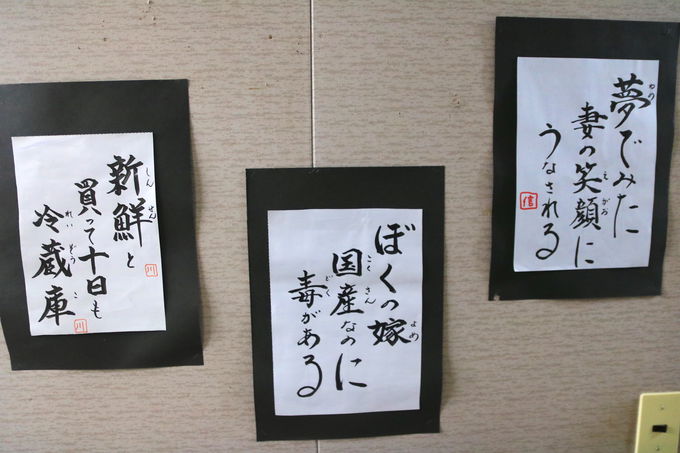 夢でみた
ゆめ
妻の笑顔に
えがお
うなされる
信
ぼくの嫁
よめ
国産なのに
こくさん
毒がある
どく
新鮮と
しんせん
買って十日も
冷蔵庫
れいぞうこ
川
川